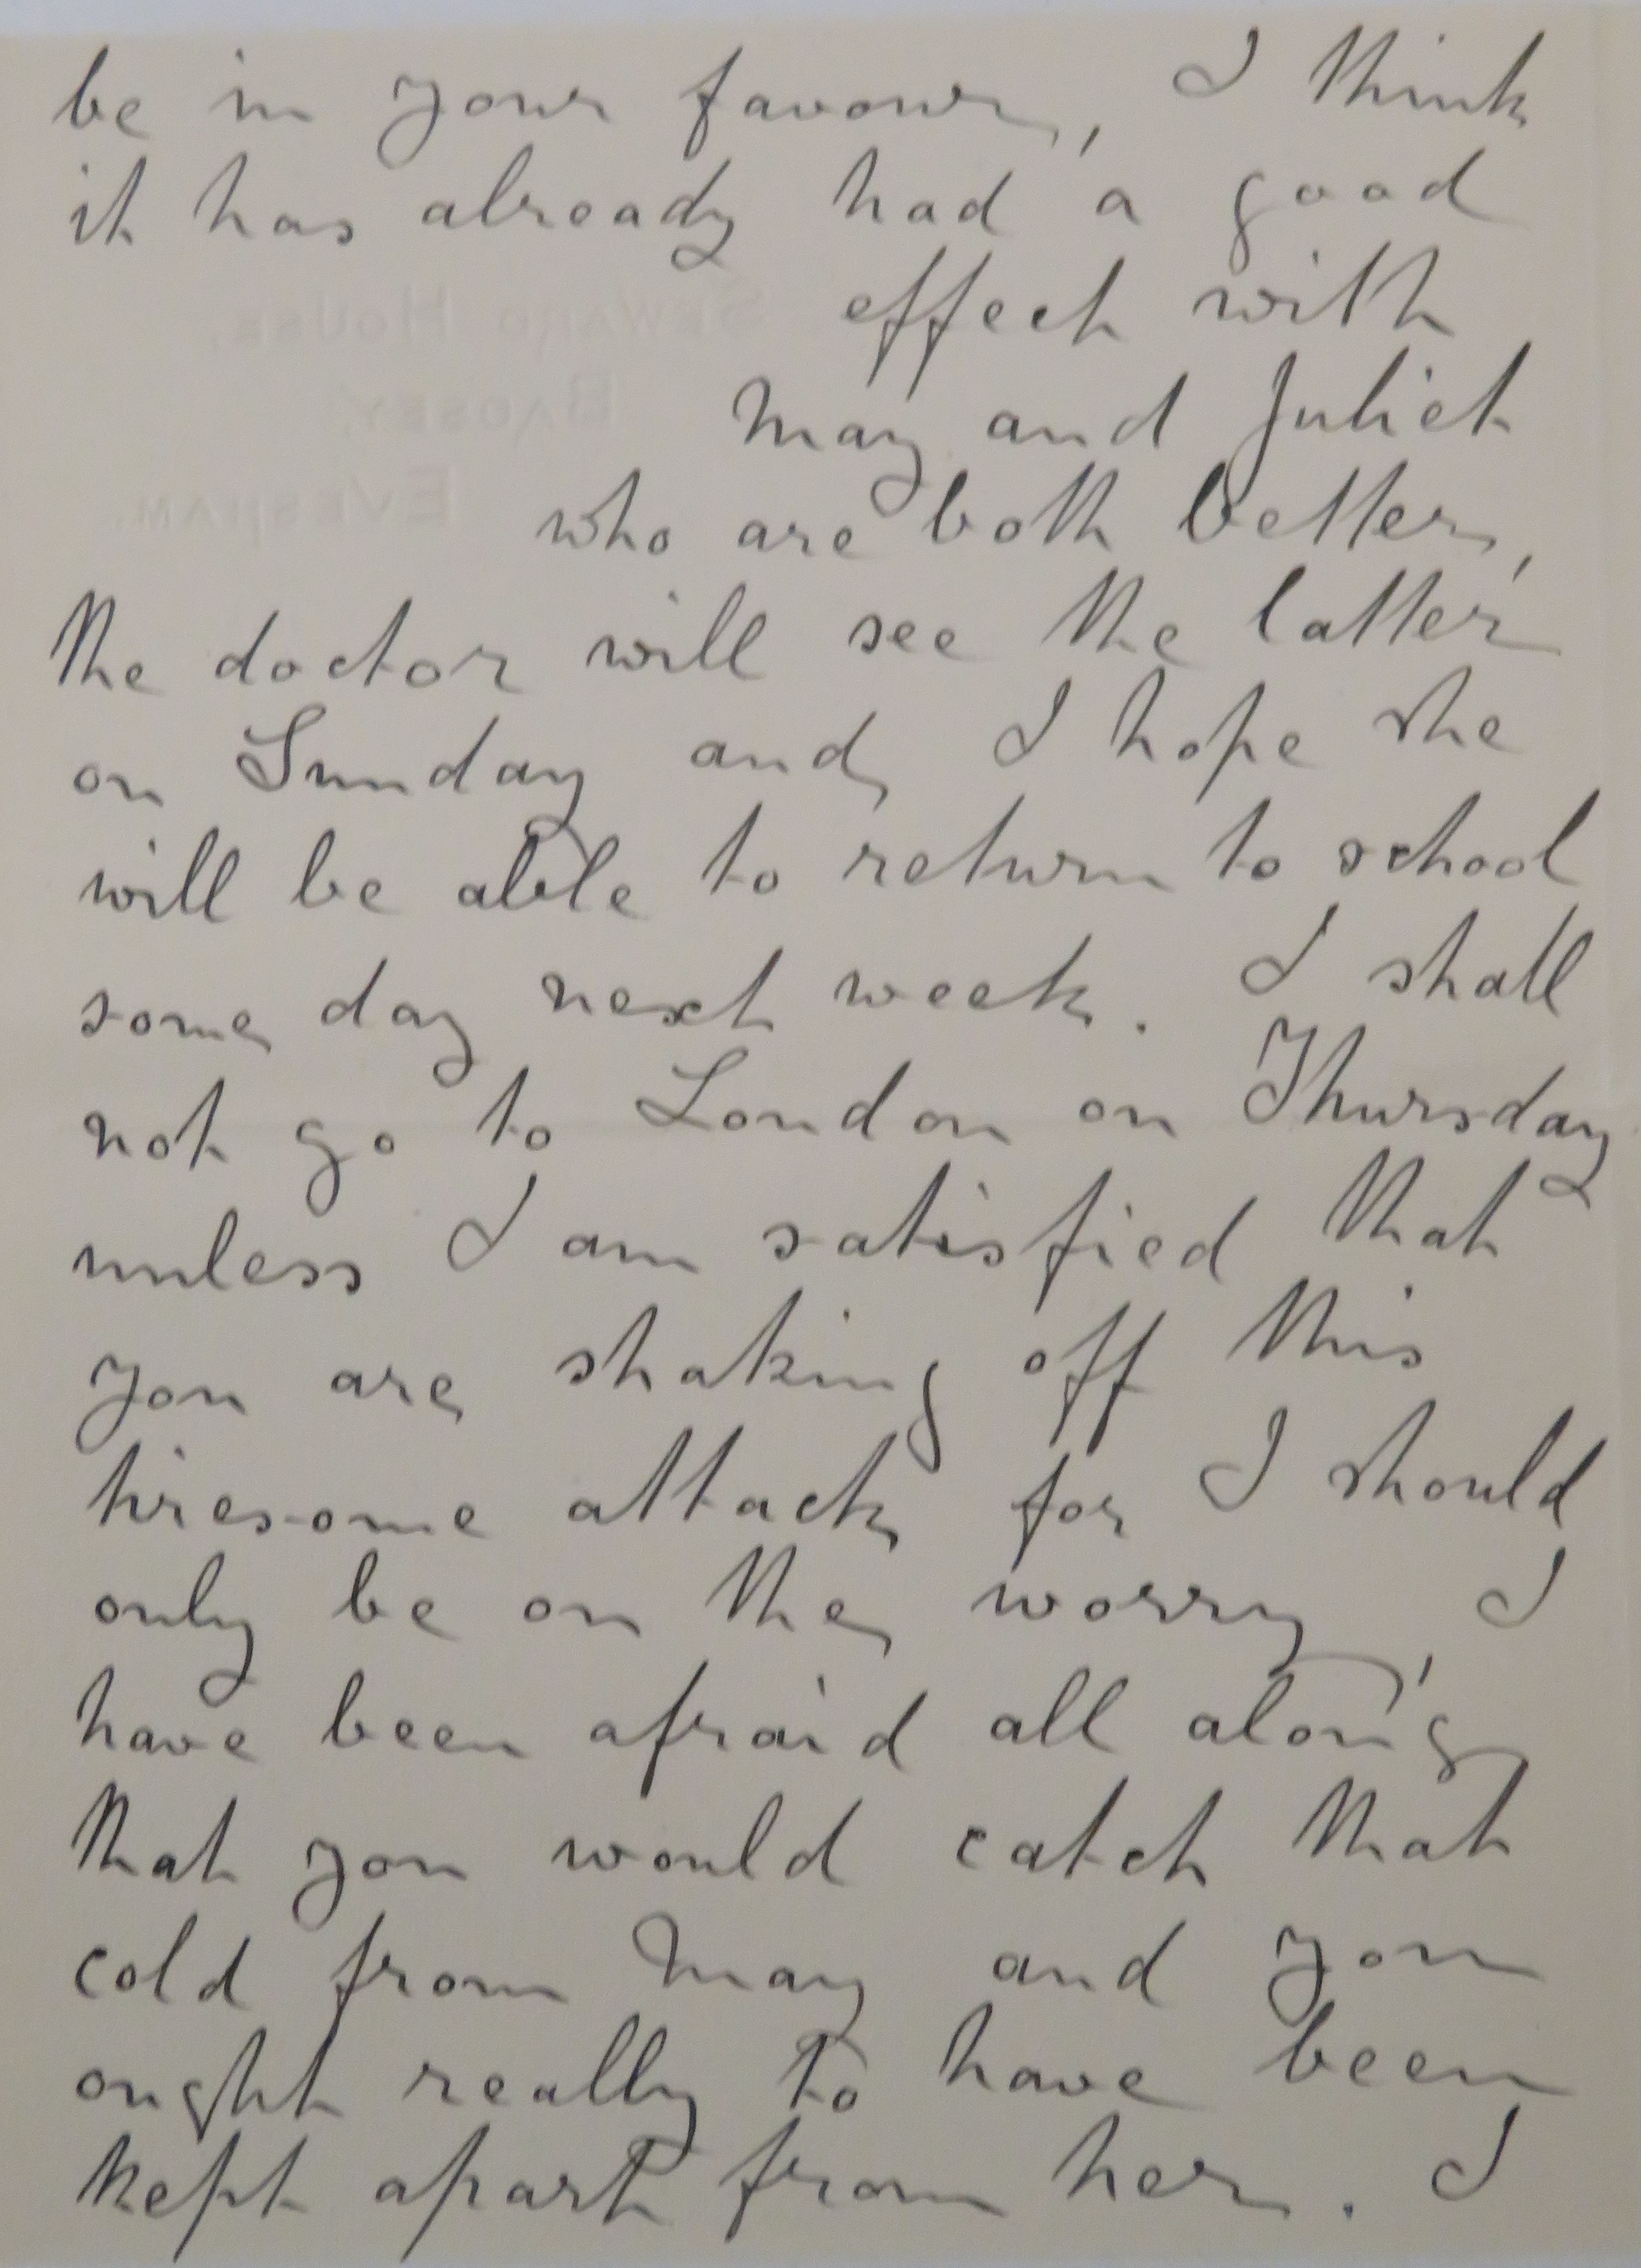 be in your favour, I think
it has already had a good
effect with
May and Juliet
who are both better,
the doctor will see the latter
on Sunday and I hope she
will be able to return to school
some day next week. I shall
not go to London on Thursday
unless I am satisfied that
you are shaking off this
tiresome attack for I should
only be on the worry, I
have been afraid all along
that you would catch that
cold from May and you
ought really to have been
kept apart from her. I
SEWARD HOUSE,
BADSEY,
EVESHAM.